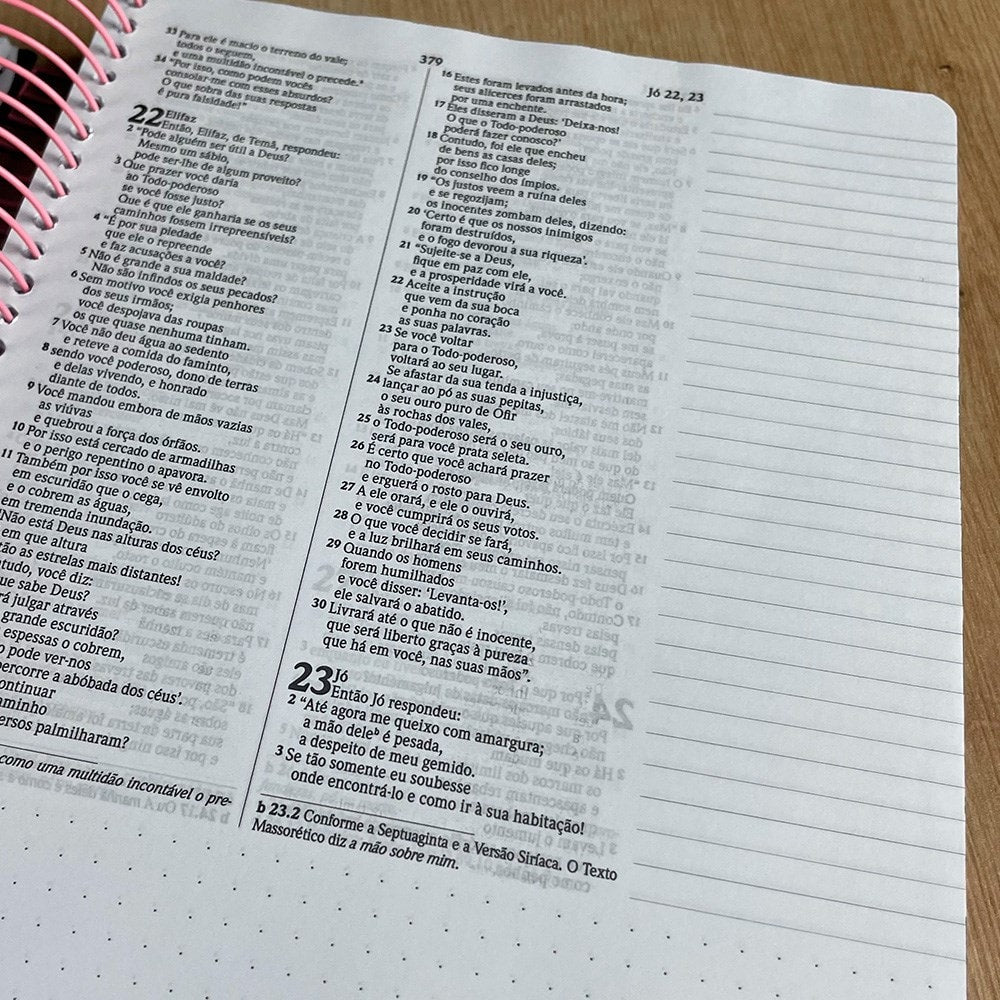 379
Jó 22, 23
33 Para ele é macio o terreno do vale;
todos o seguem,
e uma multidão incontável o precede.ª
34 "Por isso, como podem vocês
consolar-me com esses absurdos?
O que sobra das suas respostas
é pura falsidade!"
22 Elifaz
Então, Elifaz, de Temã, respondeu:
2 "Pode alguém ser útil a Deus?
Mesmo um sábio,
pode ser-lhe de algum proveito?
3 Que prazer você daria
ao Todo-poderoso
se você fosse justo?
Que é que ele ganharia se os seus
caminhos fossem irrepreensíveis?
4 "É por sua piedade
que ele o repreende
e faz acusações a você?
5 Não é grande a sua maldade?
Não são infindos os seus pecados?
6 Sem motivo você exigia penhores
dos seus irmãos;
você despojava das roupas
os que quase nenhuma tinham.
7 Você não deu água ao sedento
e reteve a comida do faminto,
8 sendo você poderoso, dono de terras
e delas vivendo, e honrado
diante de todos.
9 Você mandou embora de mãos vazias
as viúvas
e quebrou a força dos órfãos.
10 Por isso está cercado de armadilhas
e o perigo repentino o apavora.
11 Também por isso você se vê envolto
em escuridão que o cega,
e o cobrem as águas,
em tremenda inundação.
Não está Deus nas alturas dos céus?
em que altura
tão as estrelas mais distantes!
tudo, você diz:
ue sabe Deus?
rá julgar através
grande escuridão?
espessas o cobrem,
o pode ver-nos
percorre a abóbada dos céus'.
ontinuar
aminho
ersos palmilharam?
como uma multidão incontável o pre-
16 Estes foram levados antes da hora;
seus alicerces foram arrastados
por uma enchente.
17 Eles disseram a Deus: 'Deixa-nos!
O que o Todo-poderoso
poderá fazer conosco?'
18 Contudo, foi ele que encheu
de bens as casas deles;
por isso fico longe
do conselho dos ímpios.
19 "Os justos veem a ruína deles
e se regozijam;
os inocentes zombam deles, dizendo:
20 'Certo é que os nossos inimigos
foram destruídos,
e o fogo devorou a sua riqueza'.
21 "Sujeite-se a Deus,
fique em paz com ele,
e a prosperidade virá a você.
22 Aceite a instrução
que vem da sua boca
e ponha no coração
as suas palavras.
23 Se você voltar
para o Todo-poderoso,
voltará ao seu lugar.
Se afastar da sua tenda a injustiça,
24 lançar ao pó as suas pepitas,
o seu ouro puro de Ofir
às rochas dos vales,
25 o Todo-poderoso será o seu ouro,
será para você prata seleta.
26 É certo que você achará prazer
no Todo-poderoso
e erguerá o rosto para Deus.
27 A ele orará, e ele o ouvirá,
e você cumprirá os seus votos.
28 O que você decidir se fará,
e a luz brilhará em seus caminhos.
29 Quando os homens
forem humilhados
e você disser: 'Levanta-os!',
ele salvará o abatido.
30 Livrará até o que não é inocente,
que será liberto graças à pureza
que há em você, nas suas mãos".
23 Jó
Então Jó respondeu:
2 "Até agora me queixo com amargura;
a mão deleᵇ é pesada,
a despeito de meu gemido.
3 Se tão somente eu soubesse
onde encontrá-lo e como ir à sua habitação!
b 23.2 Conforme a Septuaginta e a Versão Siríaca. O Texto
Massorético diz a mão sobre mim.